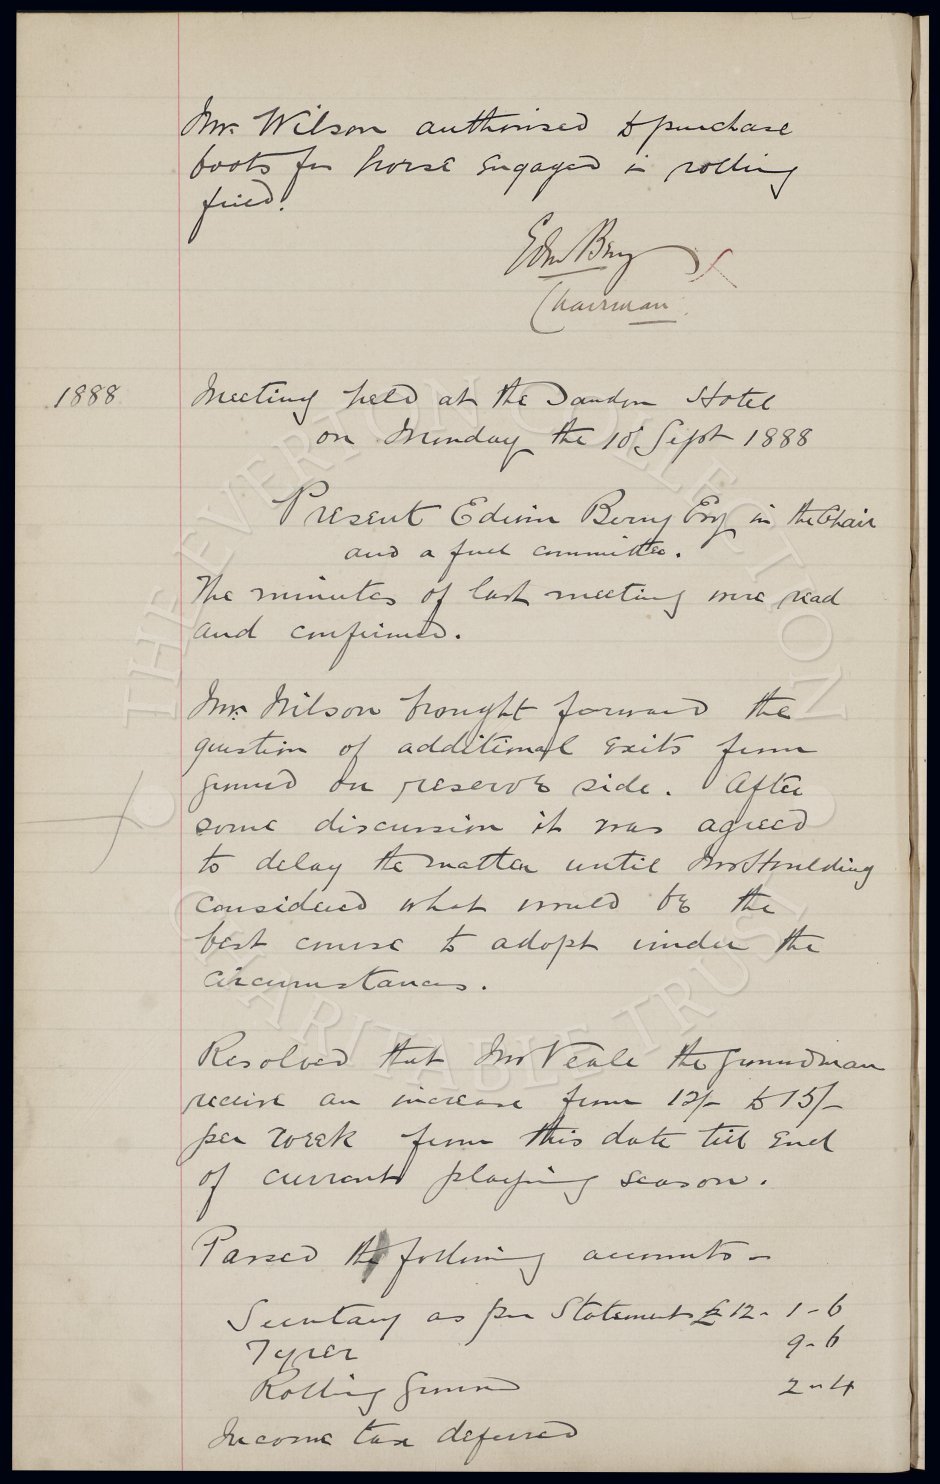 Mr. Wilson authorised to purchase
boots for horse engaged in rolling
field.
Edwin Berry
Chairman
1888 Meeting held at the Sandon Hotel
on Monday the 10 Sept 1888
Present Edwin Berry Esq in the Chair
and a full committee.
The minutes of last meeting were read
and confirmed.
Mr. Wilson brought forward the
question of additional exits from
ground on reserve side. After
some discussion it was agreed
to delay the matter until Mr Houlding
considered what would be the
best course to adopt under the
circumstances.
Resolved that Mr Veale the groundman
receive an increase from 12/- to 15/-
per week from this date till end
of current playing season.
Passed the following accounts -
Secretary as per Statement £12 - 1 - 6
Tyrer 9 - 6
Rolling Ground 2 - 4
Income tax deferred
THE EVERTON COLLECTION
CHARITABLE TRUST